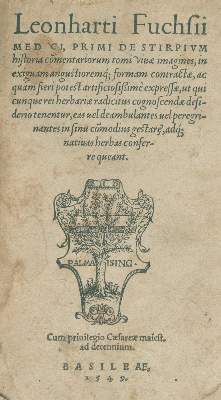 Leonharti Fuchsii
MEDICI, PRIMI DE STIRPIVM
historia cōmentariorum tomi viuæ imagines, in
exiguam angustioremq; formam contractæ, ac
quam fieri potest artificiosissime expressæ, ut qui
cunque rei herbariæ radicitus cognoscendæ desi-
derio tenentur, eas uel deambulantes uel peregri-
nantes in sinu cōmodius gestare, adq;
natiuas herbas confer-
re queant.
PALMA ISING
Cum priuilegio Cæsareæ maiest.
ad decennium.
BASILEAE,
1549.